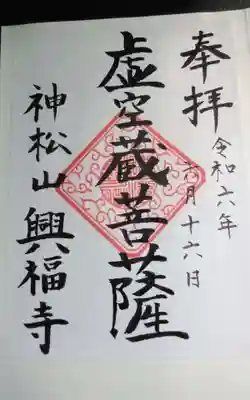 奉拝
令和六年
六月十六日
虚空蔵菩薩
神松山興福寺